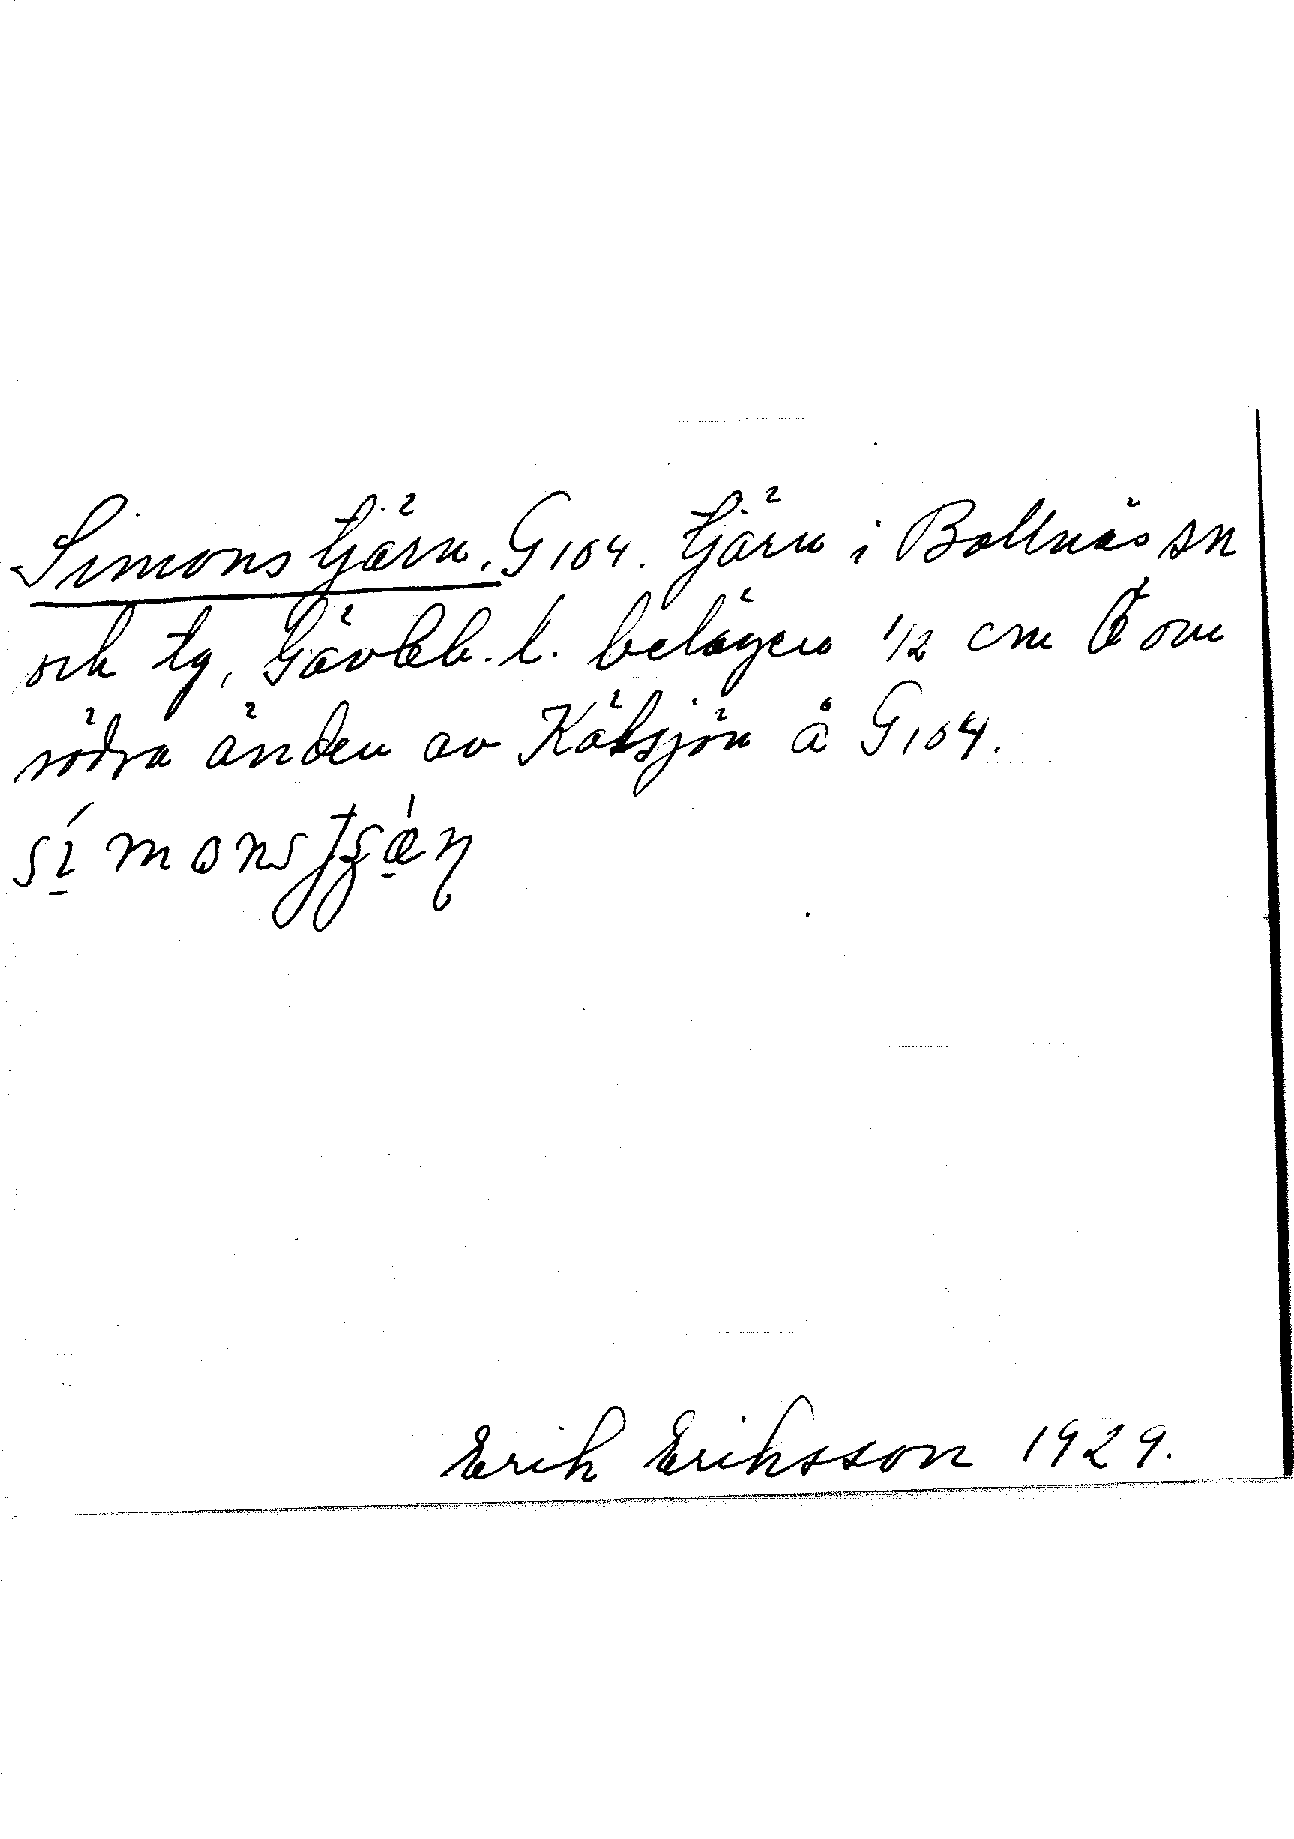 Simonstjärn. G104. tjärn i Bollnäs sn
och tg, Gävleb. l. belägen 1/2 cm Ö om
södra änden av Kälsjön å G104.
Erik Eriksson 1929.